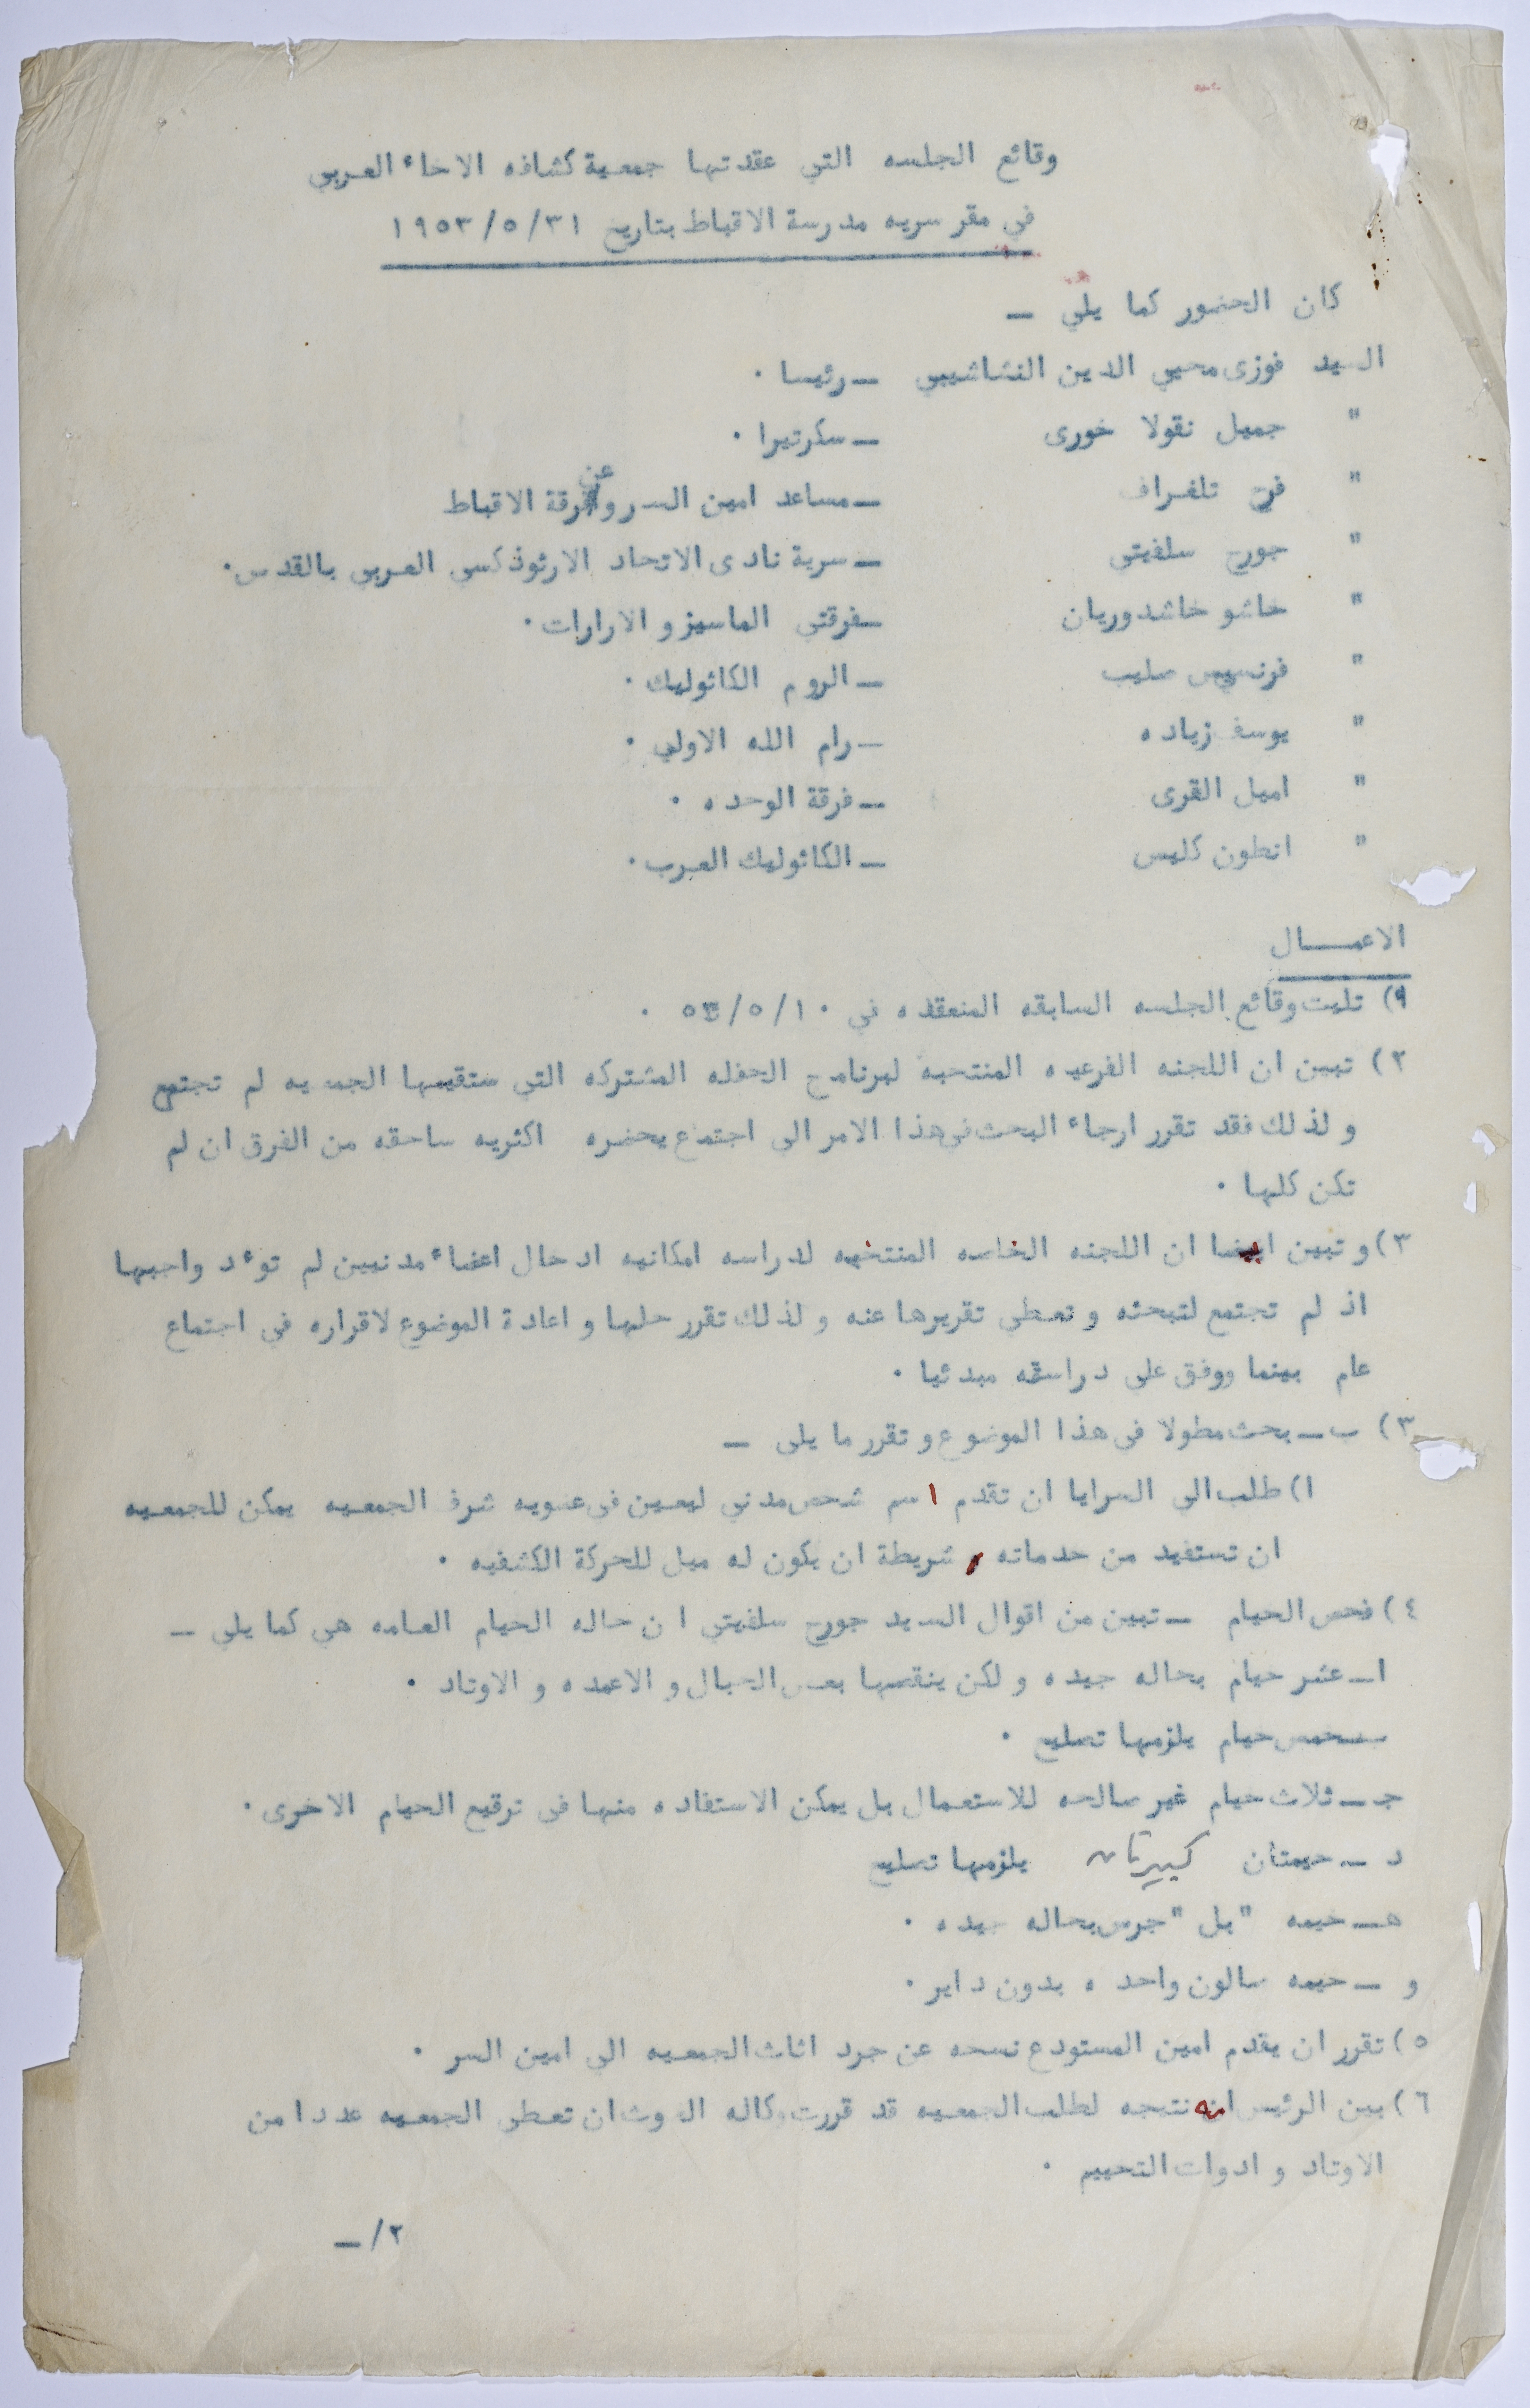 وقائع الجلسه التي عقدتها جمعية كشافه الاخاء العربي
في مقر سريه مدرسة الاقباط بتاريخ ١٩٥٣/٥/٣١
كان الحضور كما يلي —
السيد فوزى محيي الدين النشاشيبي — رئيسا .
" جميل نقولا خورى — سكرتيرا .
" فرح تلغراف — مساعد امين السر وعن فرقة الاقباط
" جورج سلفيتى — سرية نادى الاتحاد الارثوذكسى العربى بالقدس .
" خاشو خاشدوريان — فرقتى الماسيز و الارارات .
" فرنسيس سليب — الروم الكاثوليك .
" يوسف زياده — رام الله الاولى .
" اميل القرى — فرقة الوحده .
" انطون كليس — الكاثوليك العرب .
الاعمــــال
١) تليت وقائع الجلسه السابقه المنعقده في ٥٣/٥/١٠ .
٢) تبين ان اللجنه الفرعيه المنتحبة لبرنامج الحفله المشتركه التي ستقيمها الجمعيه لم تجتمع
و لذلك فقد تقرر ارجاء البحث فى هذا الامر الى اجتماع يحضره اكثريه ساحقه من الفرق ان لم
تكن كلها .
٣) و تبين ايضا ان اللجنه الخاصه المنتخبه لدراسه امكانيه ادحال اعضاء مدنيين لم توءد واجبها
اذ لم تجتمع لتبحثه و تعطي تقريرها عنه و لذلك تقرر حلها و اعادة الموضوع لاقراره في اجتماع
عام بينما ووفق على دراسته مبدئيا .
٣) ب — بحث مطولا فى هذا الموضوع و تقرر ما يلى —
١) طلب الى السرايا ان تقدم اسم شخص مدني ليعين فى عضويه شرف الجمعيه يمكن للجمعيه
ان تستفيد من حدماته , شريطة ان يكون له ميل للحركة الكشفيه .
٤) فحص الحيام — تبين من اقوال السيد جورج سلفيتي ان حاله الحيام العامه هي كما يلي —
ا — عشر حيام بحاله جيده و لكن ينقصها بعض الحبال و الاعمده و الاوتاد .
ب — خمس حيام يلزمها تصليح .
جـ — ثلاث حيام غير صالحه للاستعمال بل يمكن الاستفاده منها فى ترقيع الحيام الاخرى .
د — حيمتان كبيرتان يلزمها تصليح
هـ — خيمه " بل " جرس بحاله جيده .
و — حيمه صالون واحده بدون داير .
٥) تقرر ان يقدم امين المستودع نسحه عن جرد اثاث الجمعيه الى امين السر .
٦) بين الرئيس انه نتيجه لطلب الجمعيه قد قررت وكاله الغوث ان تعطى الجمعيه عددا من
الاوتاد و ادوات التحييم .
٢/—